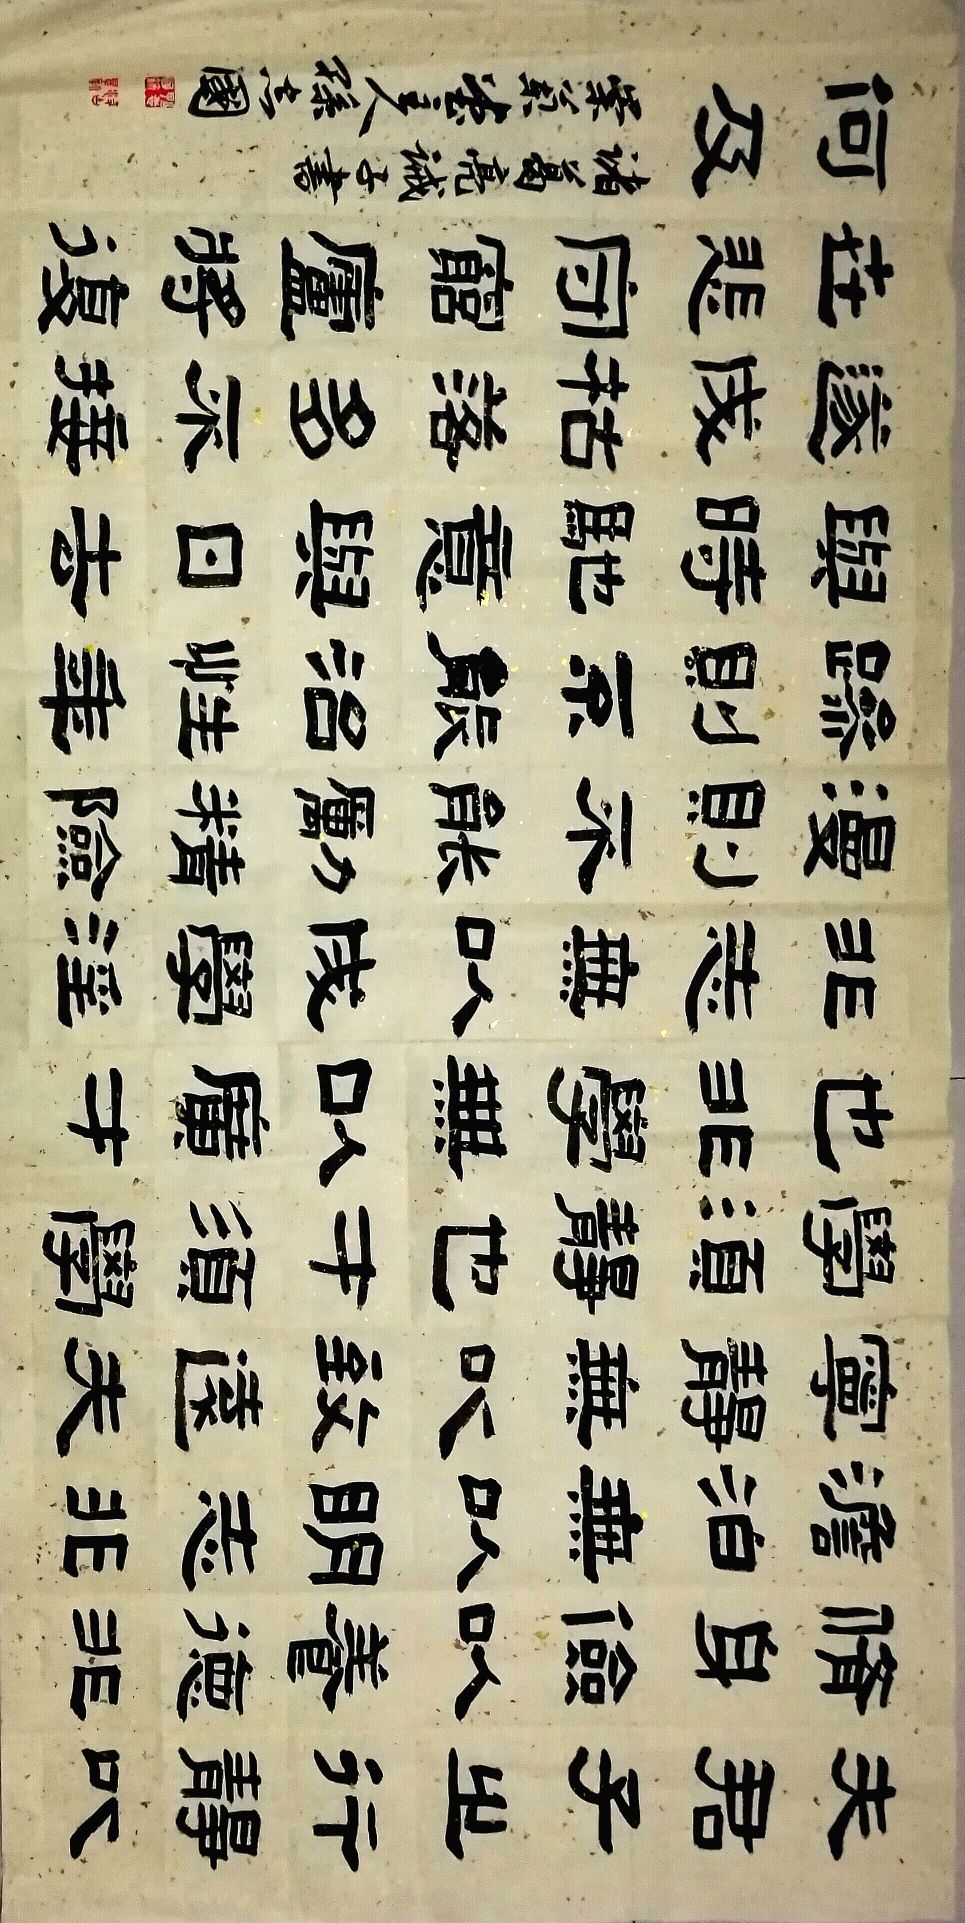 夫君子之行靜以
脩身儉以養德非
澹泊無以明志非
寧靜無以致遠夫
學須靜也才須學
也非學無以廣才
非志無以成學淫
漫則不能勵精險
躁則不能治性年
與時馳意與日去
遂成枯落多不接
世悲守窮廬將復
何及
諸葛亮誡子書
主人孫忠國